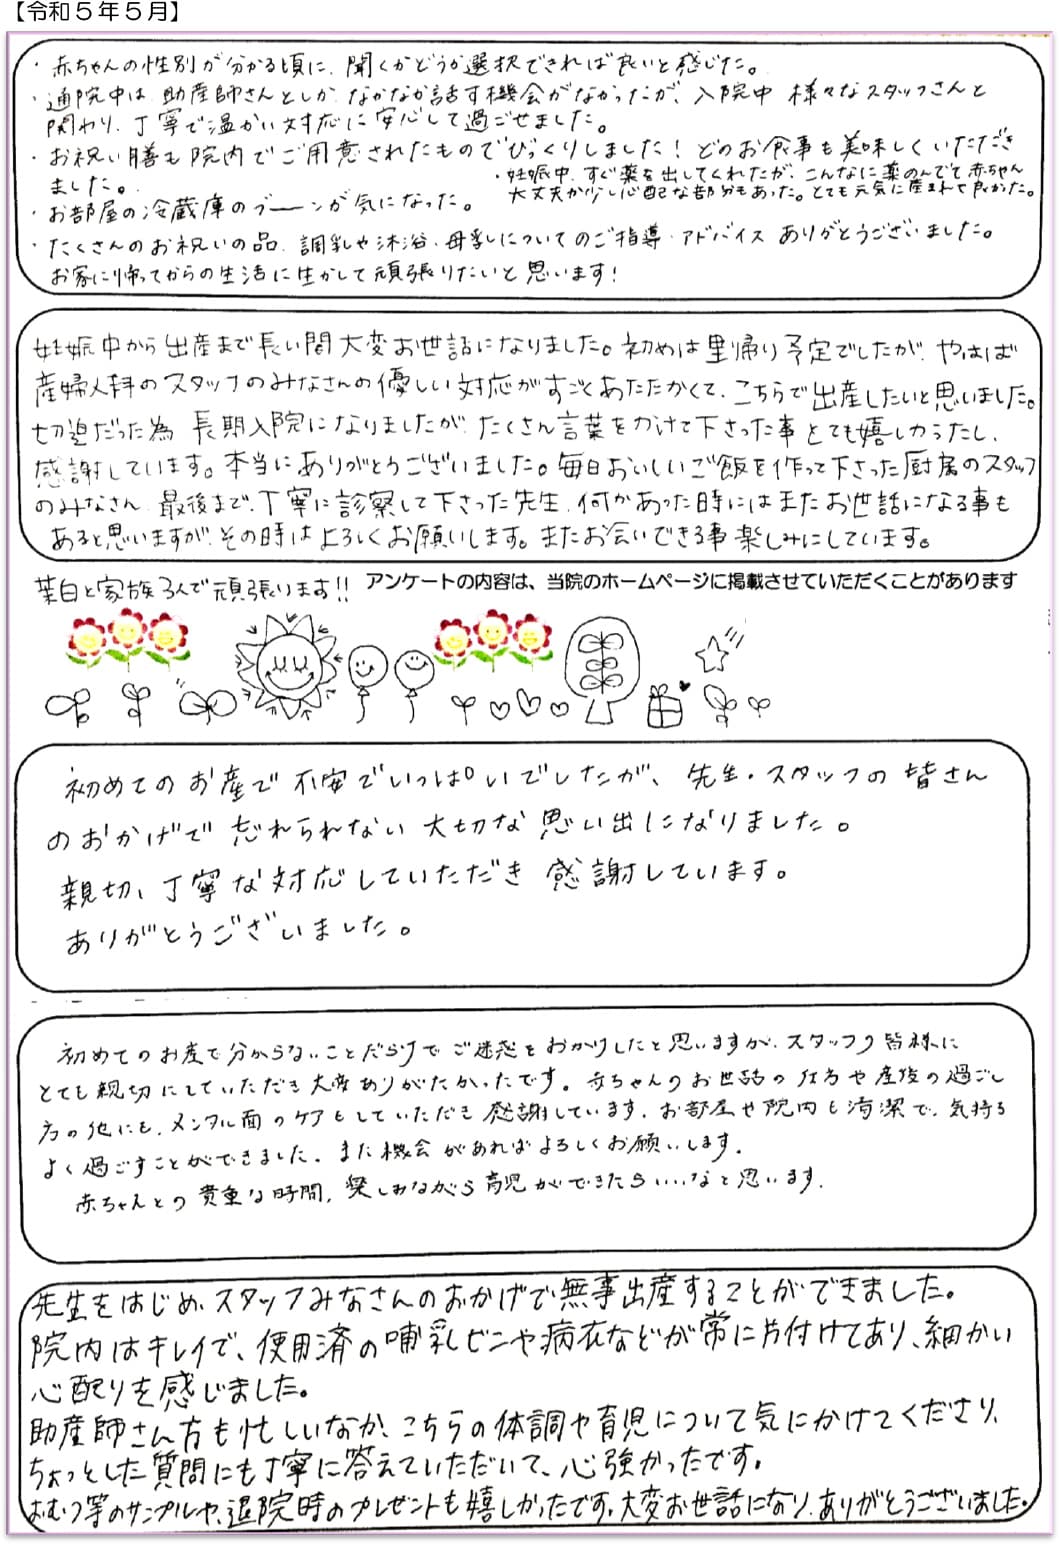 【令和５年５月】
・赤ちゃんの性別が分かる頃に、聞くかどうか選択できれば良いと感じた。
・通院中は助産師さんとしかなかなか話す機会がなかったが、入院中 様々なスタッフさんと
関わり、丁寧で温かい対応に安心して過ごせました。
・お祝い膳も院内でご用意されたものでびっくりしました！どのお食事も美味しくいただき
ました。
・妊娠中、すぐ薬を出してくれたが、こんなに薬のんでて赤ちゃん
大丈夫か少し心配な部分もあった。とても元気に産まれて良かった。
・お部屋の冷蔵庫のブーンが気になった。
・たくさんのお祝いの品、調乳や沐浴、母乳についてのご指導・アドバイス ありがとうございました。
お家に帰ってからの生活に生かして頑張りたいと思います！
妊娠中から出産まで長い間大変お世話になりました。初めは里帰り予定でしたが、やはば
産婦人科のスタッフのみなさんの優しい対応がすごくあたたかくて、こちらで出産したいと思いました。
切迫だった為 長期入院になりましたが、たくさん言葉をかけて下さった事とても嬉しかったし、
感謝しています。本当にありがとうございました。毎日おいしいご飯を作って下さった厨房のスタッフ
のみなさん、最後まで丁寧に診察して下さった先生、何かあった時にはまたお世話になる事も
あると思いますが、その時はよろしくお願いします。またお会いできる事楽しみにしています。
葉白と家族3人で頑張ります!!
アンケートの内容は、当院のホームページに掲載させていただくことがあります
初めてのお産で不安でいっぱいでしたが、先生・スタッフの皆さん
のおかげで忘れられない大切な思い出になりました。
親切、丁寧な対応していただき 感謝しています。
ありがとうございました。
初めてのお産で分からないことだらけでご迷惑をおかけしたと思いますが、スタッフの皆様に
とても親切にしていただき大変ありがたかったです。赤ちゃんのお世話の仕方や産後の過ごし
方の他にも、メンタル面のケアもしていただき感謝しています。お部屋や院内も清潔で、気持ち
よく過ごすことができました。また機会があればよろしくお願いします。
赤ちゃんとの貴重な時間、楽しみながら育児ができたらいいなと思います。
先生をはじめ、スタッフみなさんのおかげで無事出産することができました。
院内はキレイで、使用済の哺乳ビンや病衣などが常に片付けてあり、細かい
心配りを感じました。
助産師さん方も忙しいなか、こちらの体調や育児について気にかけてくださり、
ちょっとした質問にも丁寧に答えていただいて、心強かったです。
おむつ等のサンプルや、退院時のプレゼントも嬉しかったです。大変お世話になり、ありがとうございました。